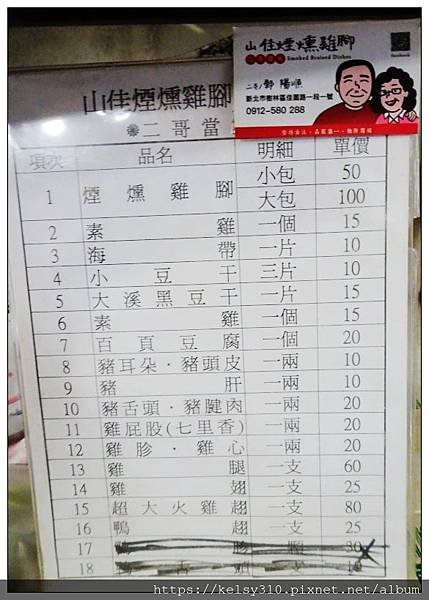 山佳煙燻雞腳
Smoked Braised Dishes
二哥/鄭陽順
新北市樹林區佳園路一段一號
0912-580 288
堅持古法・品質第一・衛生清潔
山佳煙燻雞腳
二哥當
項次 品名 明細 單價
1 煙燻雞腳 小包 50
大包 100
2 素雞 一個 15
3 海帶 一片 10
4 小豆干 三片 10
5 大溪黑豆干 一片 15
6 素雞 一個 15
7 百頁豆腐 一個 20
8 豬耳朵・豬頭皮 一兩 10
9 豬肝 一兩 10
10 豬舌頭・豬腱肉 一兩 20
11 雞屁股(七里香) 一兩 20
12 雞胗・雞心 一兩 20
13 雞腿 一支 60
14 雞翅 一支 25
15 超大火雞翅 一支 80
16 鴨翅 一支 25
17
18
https://kelsy310.pixnet.net/album